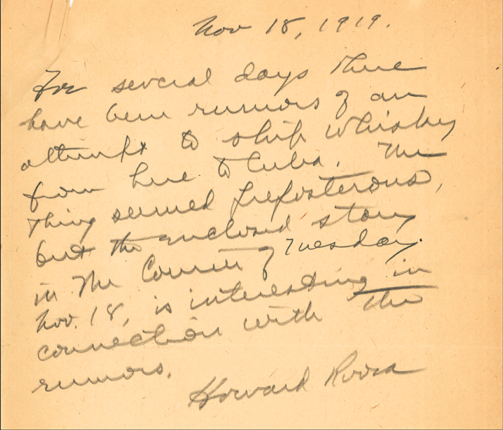 Nov 18, 1919.
For several days there
have been rumors of an
attempt to ship whiskey
from here to Cuba. The
thing seemed preposterous,
but the enclosed story
in the Courier of Tuesday.
Nov. 18, is interesting in
connection with the
rumors.
Howard Roosa